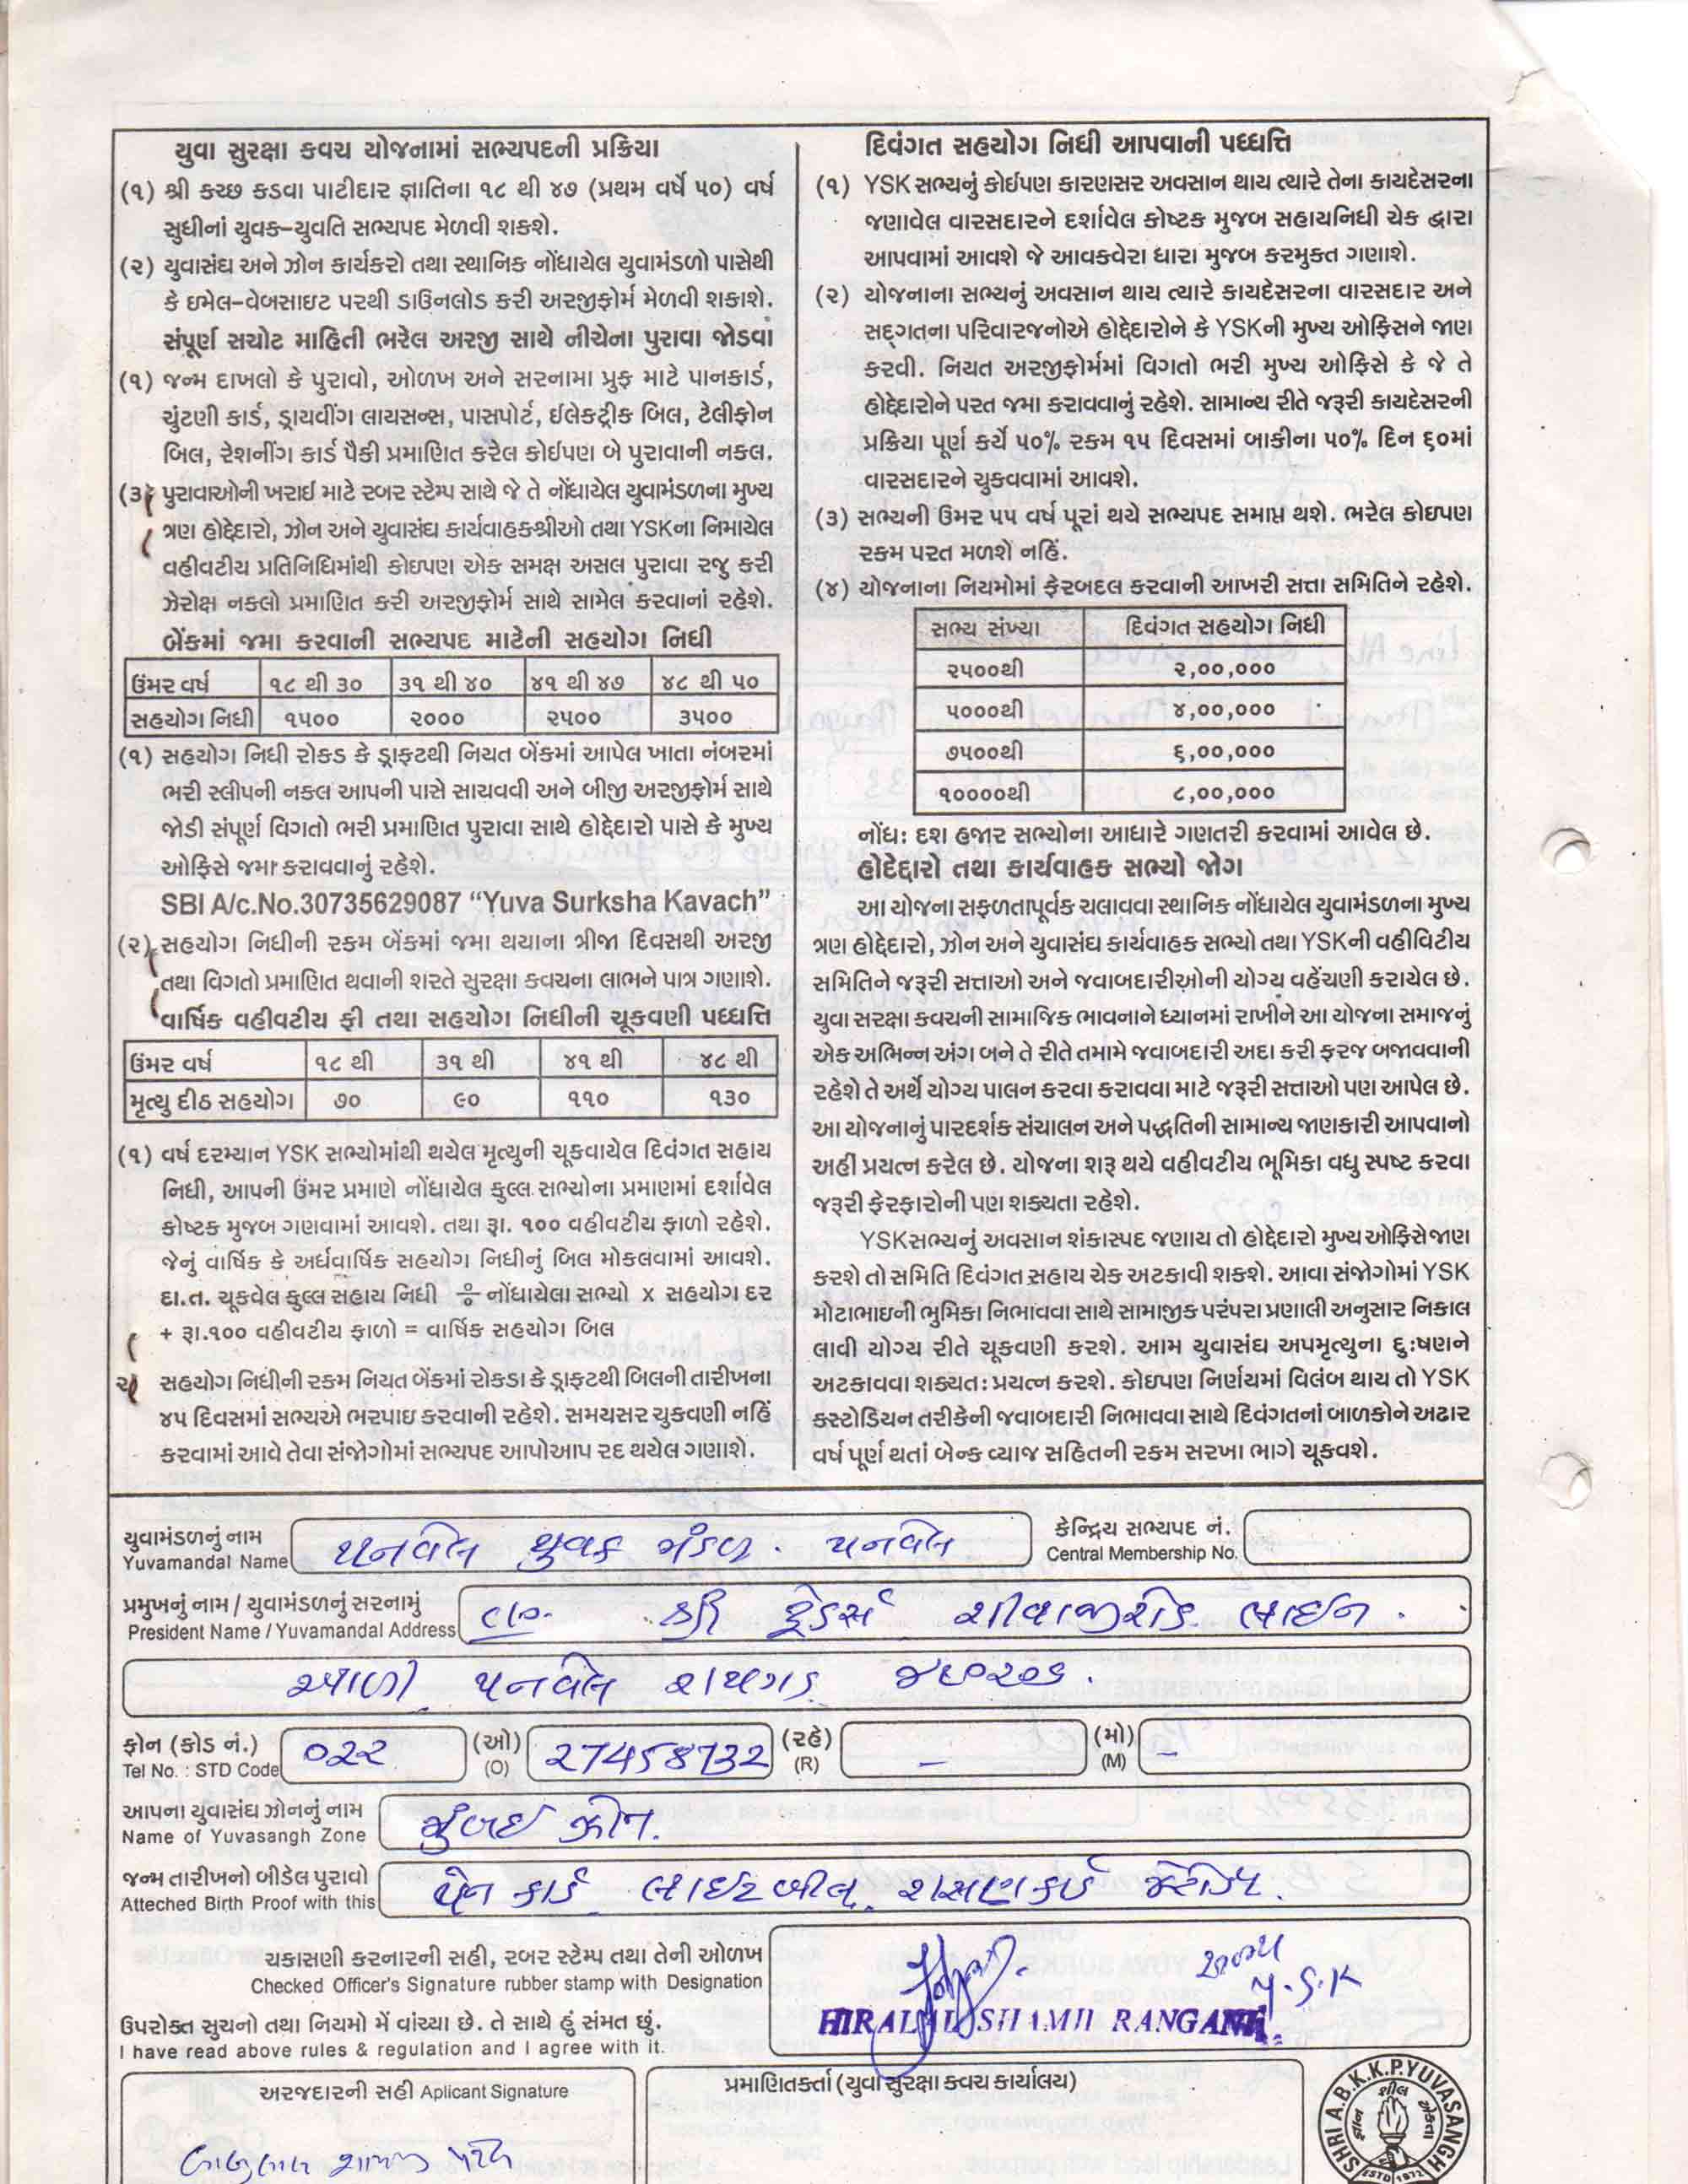 યુવા સુરક્ષા કવચ યોજનામાં સભ્યપદની પ્રક્રિયા
(૧) શ્રી કચ્છ કડવા પાટીદાર જ્ઞાતિના ૧૮ થી ૪૭ (પ્રથમ વર્ષે ૫૦) વર્ષ
સુધીનાં યુવક-યુવતિ સભ્યપદ મેળવી શકશે.
(૨) યુવાસંઘ અને ઝોન કાર્યકરો તથા સ્થાનિક નોંધાયેલ યુવામંડળો પાસેથી
કે ઇમેલ-વેબસાઇટ પરથી ડાઉનલોડ કરી અરજીફોર્મ મેળવી શકાશે.
સંપૂર્ણ સચોટ માહિતી ભરેલ અરજી સાથે નીચેના પુરાવા જોડવાં
(૧) જન્મ દાખલો કે પુરાવો, ઓળખ અને સરનામા પ્રુફ માટે પાનકાર્ડ,
ચુંટણી કાર્ડ, ડ્રાયવીંગ લાયસન્સ, પાસપોર્ટ, ઈલેક્ટ્રીક બિલ, ટેલીફોન
બિલ, રેશનીંગ કાર્ડ પૈકી પ્રમાણિત કરેલ કોઈપણ બે પુરાવાની નકલ.
(૩) પુરાવાઓની ખરાઈ માટે રબર સ્ટેમ્પ સાથે જે તે નોંધાયેલ યુવામંડળના મુખ્ય
ત્રણ હોદ્દેદારો, ઝોન અને યુવાસંઘ કાર્યવાહકશ્રીઓ તથા YSKના નિમાયેલ
વહીવટીય પ્રતિનિધિમાંથી કોઇપણ એક સમક્ષ અસલ પુરાવા રજુ કરી
ઝેરોક્ષ નકલો પ્રમાણિત કરી અરજીફોર્મ સાથે સામેલ કરવાનાં રહેશે.
બેંકમાં જમા કરવાની સભ્યપદ માટેની સહયોગ નિધી
ઉંમર વર્ષ ૧૮ થી ૩૦ ૩૧ થી ૪૦ ૪૧ થી ૪૭ ૪૮ થી ૫૦
સહયોગ નિધી ૧૫૦૦ ૨૦૦૦ ૨૫૦૦ ૩૫૦૦
(૧) સહયોગ નિધી રોકડ કે ડ્રાફટથી નિયત બેંકમાં આપેલ ખાતા નંબરમાં
ભરી સ્લીપની નકલ આપની પાસે સાચવવી અને બીજી અરજીફોર્મ સાથે
જોડી સંપૂર્ણ વિગતો ભરી પ્રમાણિત પુરાવા સાથે હોદ્દેદારો પાસે કે મુખ્ય
ઓફિસે જમા કરાવવાનું રહેશે.
SBI A/c.No.30735629087 “Yuva Surksha Kavach”
(૨) સહયોગ નિધીની રકમ બેંકમાં જમા થયાના ત્રીજા દિવસથી અરજી
તથા વિગતો પ્રમાણિત થવાની શરતે સુરક્ષા કવચના લાભને પાત્ર ગણાશે.
વાર્ષિક વહીવટીય ફી તથા સહયોગ નિધીની ચૂકવણી પધ્ધત્તિ
ઉંમર વર્ષ ૧૮ થી ૩૧ થી ૪૧ થી ૪૮ થી
મૃત્યુ દીઠ સહયોગ ૭૦ ૯૦ ૧૧૦ ૧૩૦
(૧) વર્ષ દરમ્યાન YSK સભ્યોમાંથી થયેલ મૃત્યુની ચૂકવાયેલ દિવંગત સહાય
નિધી, આપની ઉંમર પ્રમાણે નોંધાયેલ કુલ્લ સભ્યોના પ્રમાણમાં દર્શાવેલ
કોષ્ટક મુજબ ગણવામાં આવશે. તથા રૂા. ૧૦૦ વહીવટીય ફાળો રહેશે.
જેનું વાર્ષિક કે અર્ધવાર્ષિક સહયોગ નિધીનું બિલ મોકલવામાં આવશે.
દા.ત. ચૂકવેલ કુલ્લ સહાય નિધી ÷ નોંધાયેલા સભ્યો x સહયોગ દર
+ રૂા.૧૦૦ વહીવટીય ફાળો = વાર્ષિક સહયોગ બિલ
૨) સહયોગ નિધીની રકમ નિયત બેંકમાં રોકડા કે ડ્રાફટથી બિલની તારીખના
૪૫ દિવસમાં સભ્યએ ભરપાઇ કરવાની રહેશે. સમયસર ચુકવણી નહિં
કરવામાં આવે તેવા સંજોગોમાં સભ્યપદ આપોઆપ રદ થયેલ ગણાશે.
દિવંગત સહયોગ નિધી આપવાની પધ્ધત્તિ
(૧) YSK સભ્યનું કોઈપણ કારણસર અવસાન થાય ત્યારે તેના કાયદેસરના
જણાવેલ વારસદારને દર્શાવેલ કોષ્ટક મુજબ સહાયનિધી ચેક દ્વારા
આપવામાં આવશે જે આવકવેરા ધારા મુજબ કરમુક્ત ગણાશે.
(૨) યોજનાના સભ્યનું અવસાન થાય ત્યારે કાયદેસરના વારસદાર અને
સદ્ગતના પરિવારજનોએ હોદ્દેદારોને કે YSKની મુખ્ય ઓફિસને જાણ
કરવી. નિયત અરજીફોર્મમાં વિગતો ભરી મુખ્ય ઓફિસે કે જે તે
હોદ્દેદારોને પરત જમા કરાવવાનું રહેશે. સામાન્ય રીતે જરૂરી કાયદેસરની
પ્રક્રિયા પૂર્ણ કર્યે ૫૦% રકમ ૧૫ દિવસમાં બાકીના ૫૦% દિન ૬૦માં
વારસદારને ચુકવવામાં આવશે.
(૩) સભ્યની ઉમર ૫૫ વર્ષ પૂરાં થયે સભ્યપદ સમાપ્ત થશે. ભરેલ કોઇપણ
રકમ પરત મળશે નહિં.
(૪) યોજનાના નિયમોમાં ફેરબદલ કરવાની આખરી સત્તા સમિતિને રહેશે.
સભ્ય સંખ્યા દિવંગત સહયોગ નિધી
૨૫૦૦થી ૨,૦૦,૦૦૦
૫૦૦૦થી ૪,૦૦,૦૦૦
૭૫૦૦થી ૬,૦૦,૦૦૦
૧૦૦૦૦થી ૮,૦૦,૦૦૦
નોંધ: દશ હજાર સભ્યોના આધારે ગણતરી કરવામાં આવેલ છે.
હોદેદ્દારો તથા કાર્યવાહક સભ્યો જોગ
આ યોજના સફળતાપૂર્વક ચલાવવા સ્થાનિક નોંધાયેલ યુવામંડળના મુખ્ય
ત્રણ હોદ્દેદારો, ઝોન અને યુવાસંઘ કાર્યવાહક સભ્યો તથા YSKની વહીવિટીય
સમિતિને જરૂરી સત્તાઓ અને જવાબદારીઓની યોગ્ય વહેંચણી કરાયેલ છે.
યુવા સરક્ષા કવચની સામાજિક ભાવનાને ધ્યાનમાં રાખીને આ યોજના સમાજનું
એક અભિન્ન અંગ બને તે રીતે તમામે જવાબદારી અદા કરી ફરજ બજાવવાની
રહેશે તે અર્થે યોગ્ય પાલન કરવા કરાવવા માટે જરૂરી સત્તાઓ પણ આપેલ છે.
આ યોજનાનું પારદર્શક સંચાલન અને પદ્ધતિની સામાન્ય જાણકારી આપવાનો
અહીં પ્રયત્ન કરેલ છે. યોજના શરૂ થયે વહીવટીય ભૂમિકા વધુ સ્પષ્ટ કરવા
જરૂરી ફેરફારોની પણ શક્યતા રહેશે.
YSKસભ્યનું અવસાન શંકાસ્પદ જણાય તો હોદ્દેદારો મુખ્ય ઓફિસે જાણ
કરશે તો સમિતિ દિવંગત સહાય ચેક અટકાવી શકશે. આવા સંજોગોમાં YSK
મોટાભાઇની ભુમિકા નિભાવવા સાથે સામાજીક પરંપરા પ્રણાલી અનુસાર નિકાલ
લાવી યોગ્ય રીતે ચૂકવણી કરશે. આમ યુવાસંઘ અપમૃત્યુના દુ:ષણને
અટકાવવા શક્યત: પ્રયત્ન કરશે. કોઇપણ નિર્ણયમાં વિલંબ થાય તો YSK
કસ્ટોડિયન તરીકેની જવાબદારી નિભાવવા સાથે દિવંગતનાં બાળકોને અઢાર
વર્ષ પૂર્ણ થતાં બેન્ક વ્યાજ સહિતની રકમ સરખા ભાગે ચૂકવશે.
યુવામંડળનું નામ પનવેલ યુવક મંડળ. પનવેલ કેન્દ્રિય સભ્યપદ નં.
Yuvamandal Name Central Membership No.
પ્રમુખનું નામ / યુવામંડળનું સરનામું હરી ટ્રેડર્સ શીવાજીરોડ લાઈન.
President Name / Yuvamandal Address
આળી પનવેલ રાયગડ ૪૧૦૨૦૬.
ફોન (કોડ નં.) ૦૨૨ (ઓ) 27458732 (રહે) – (મો) –
Tel No. : STD Code (O) (R) (M)
આપના યુવાસંઘ ઝોનનું નામ મુંબઈ ઝોન.
Name of Yuvasangh Zone
જન્મ તારીખનો બીડેલ પુરાવો પેન કાર્ડ લાઈટ બીલ, રાસણ કાર્ડ
Atteched Birth Proof with this
ચકાસણી કરનારની સહી, રબર સ્ટેમ્પ તથા તેની ઓળખ
Checked Officer's Signature rubber stamp with Designation
Y.S.K
HIRALAL SHAMJI RANGANI
ઉપરોક્ત સુચનો તથા નિયમો મેં વાંચ્યા છે. તે સાથે હું સંમત છું.
I have read above rules & regulation and I agree with it.
અરજદારની સહી Aplicant Signature
પ્રમાણિતકર્તા (યુવા સુરક્ષા કવચ કાર્યાલય)
SHRI A.B.K.K.P.YUVASANGH
ESTD 1972